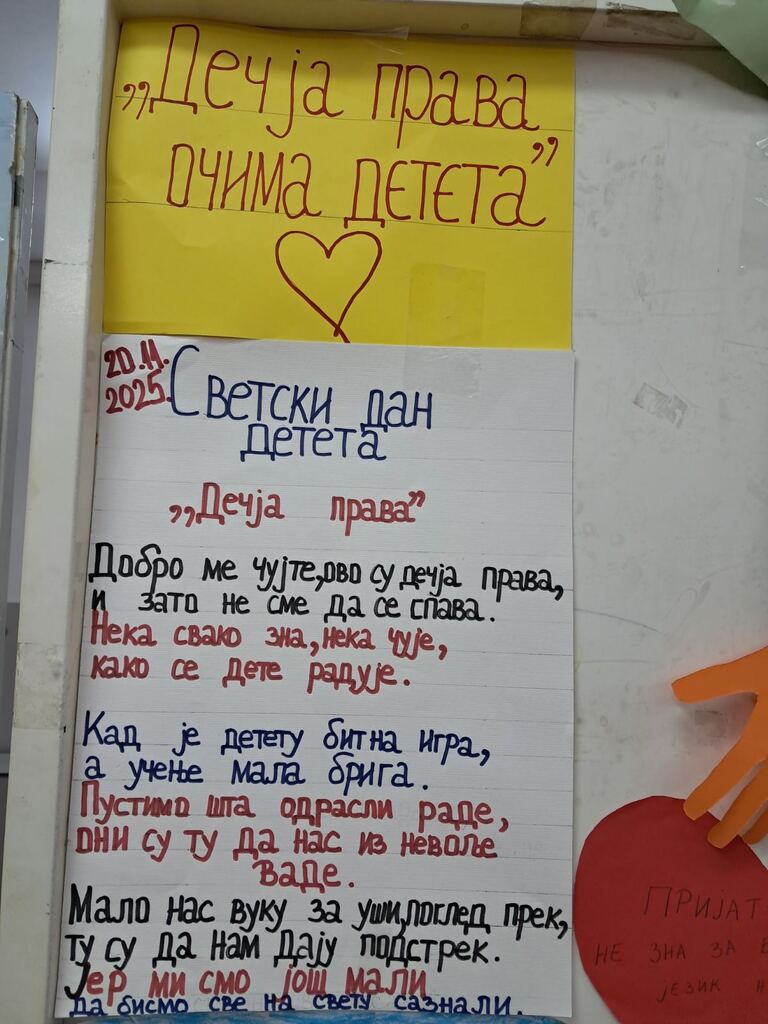 „Дечја права
очима детета”
20.11.
2025.
Светски дан
детета
„Дечја права”
Добро ме чујте, ово су дечја права,
и зато не сме да се спава.
Нека свако зна, нека чује,
како се дете радује.
Кад је детету битна игра,
а учење мала брига.
Пустимо шта одрасли раде,
они су ту да нас из невоље
ваде.
Мало нас вуку за уши, поглед прек,
ту су да нам дају подстрек.
Јер ми смо још мали
да бисмо све на свету сазнали.
ПРИЈАТ
НЕ ЗНА ЗА
ЈЕЗИК